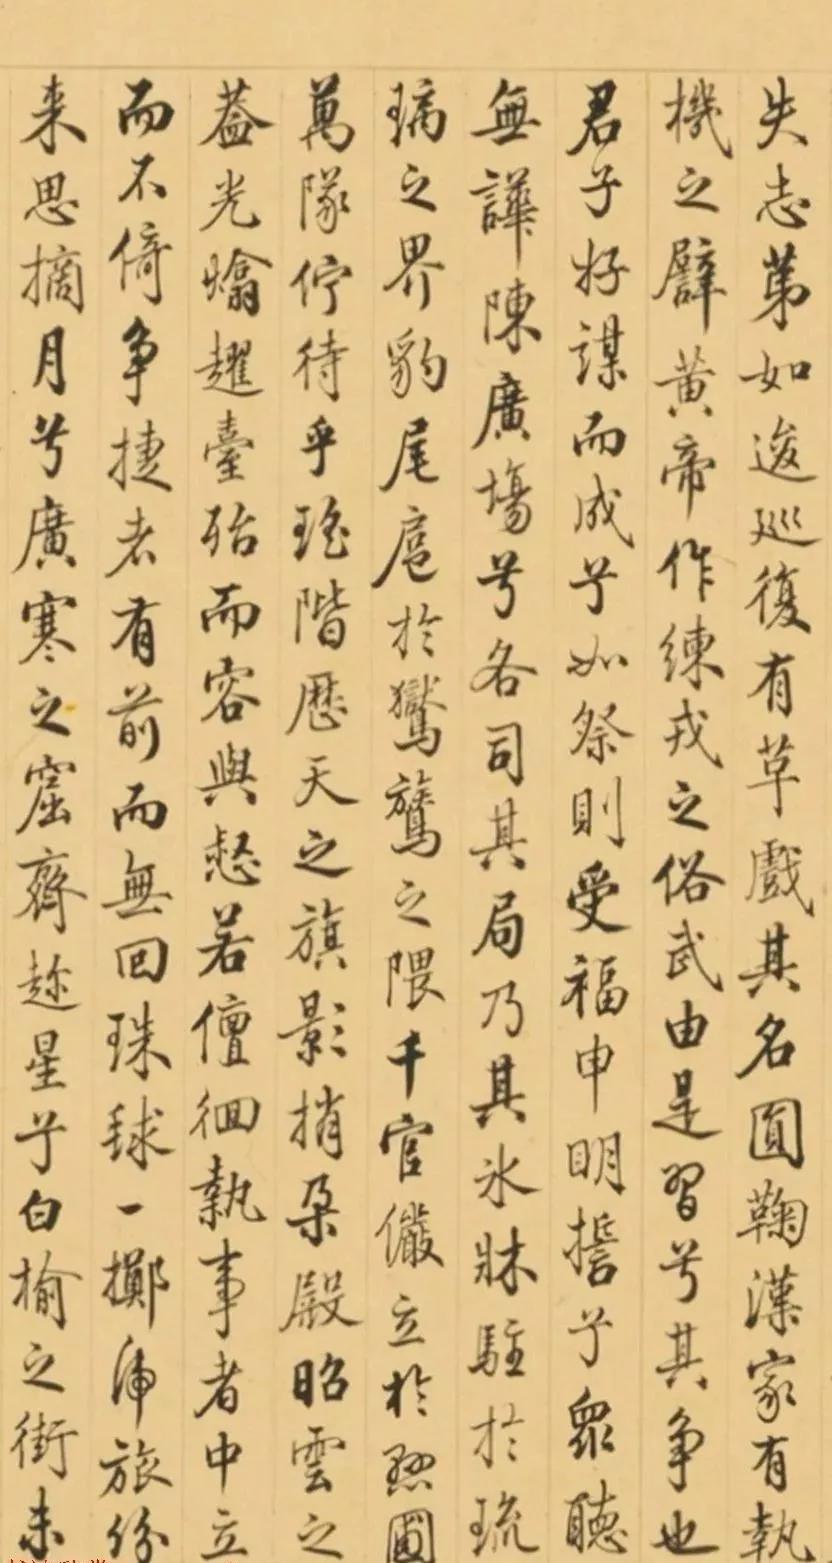 失志苐如逡巡復有革戲其名圓鞠漢家有執
機之譬黄帝作練戎之俗武由是習兮其争也
君子好謀而成兮如祭則受福申明誓兮衆聽
無譁陳廣塲兮各司其局乃其氷牀駐於琉
璃之界豹尾扈於鸑鷟之隈千官儼立於懸圃
萬隊佇待乎瑤階歷天之旗影捎朶殿昭雲之
葢光爚趯臺殆而容與若儃徊執事者中立
而不倚争捷者有前而無回珠球一擲虎旅紛
来思摘月兮廣寒之窟齊趂星兮白榆之街未